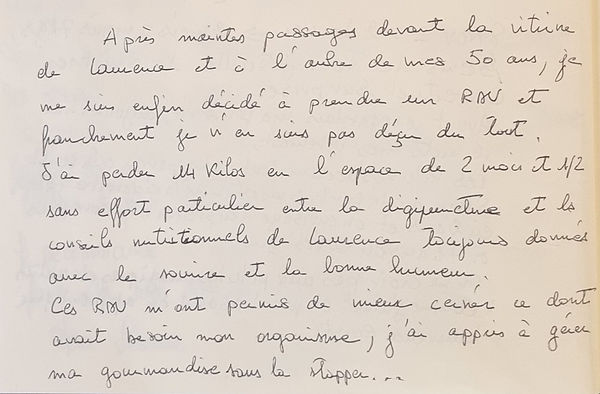 Après maintes passages devant la vitrine
de Laurence et à l'aube de mes 50 ans, je
me suis enfin décidé à prendre un RDV et
franchement je n'en suis pas déçu du tout.
J'ai perdu 14 Kilos en l'espace de 2 mois et 1/2
sans effort particulier entre la digipuncture et les
conseils nutritionnels de Laurence toujours donnés
avec le sourire et la bonne humeur.
Ces RDV m'ont permis de mieux cerner ce dont
avait besoin mon organisme, j'ai appris à gérer
ma gourmandise sans la stopper...